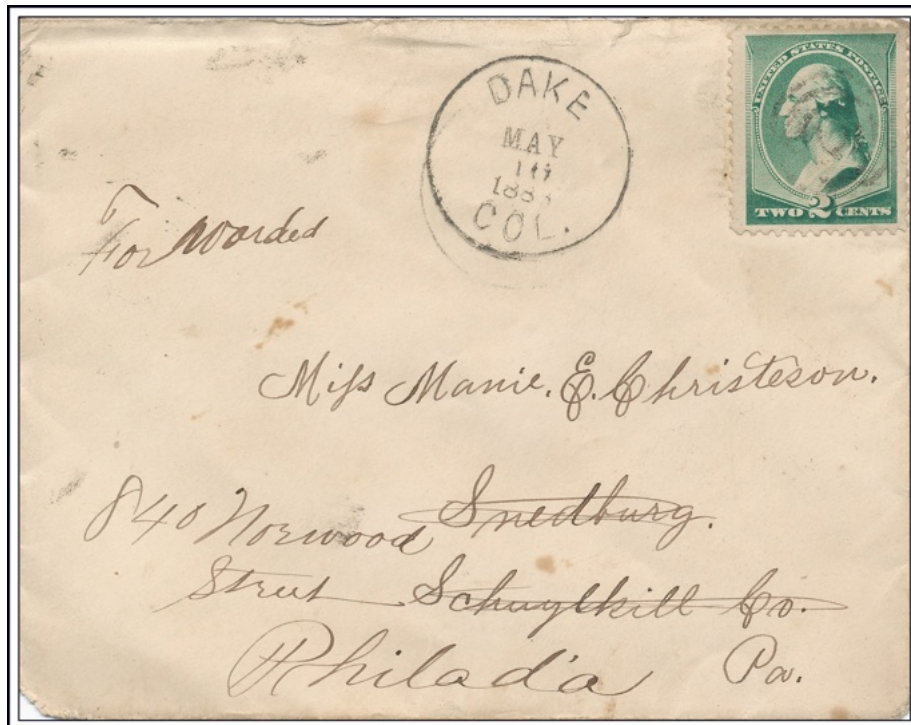 DAKE
MAY
COL.
UNITED STATES POSTAGE
TWO 2 CENTS
Forwarded
Miſs Manie. E. Christeson.
840 Norwood Snedburg.
Street Schuylkill Co.
Philad'a Pa.